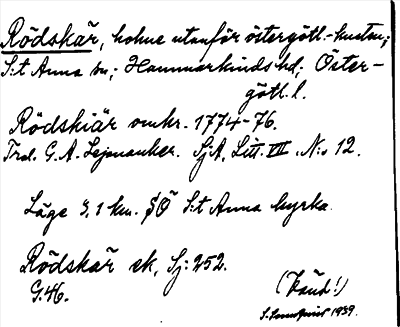 Rödskär, holme utanför östergötl.-kusten;
S:t Anna sn; Hammarkinds hd; Öster-
götl. l.
Rödskiär omkr. 1774-76.
Trol. G. A. Lejonanker. SjA, Litt. VII. N:o 12.
Läge 3,1 km. SÖ S:t Anna kyrka.
Rödskär ek, Sj: 252.
G. 46.
(Känd!)
1939.